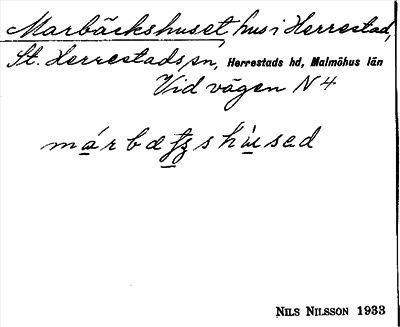 Marbäckshuset, hus i Herrestad,
St. Herrestads sn, Herrestads hd, Malmöhus län
Vid vägen N 4
NILS NILSSON 1933